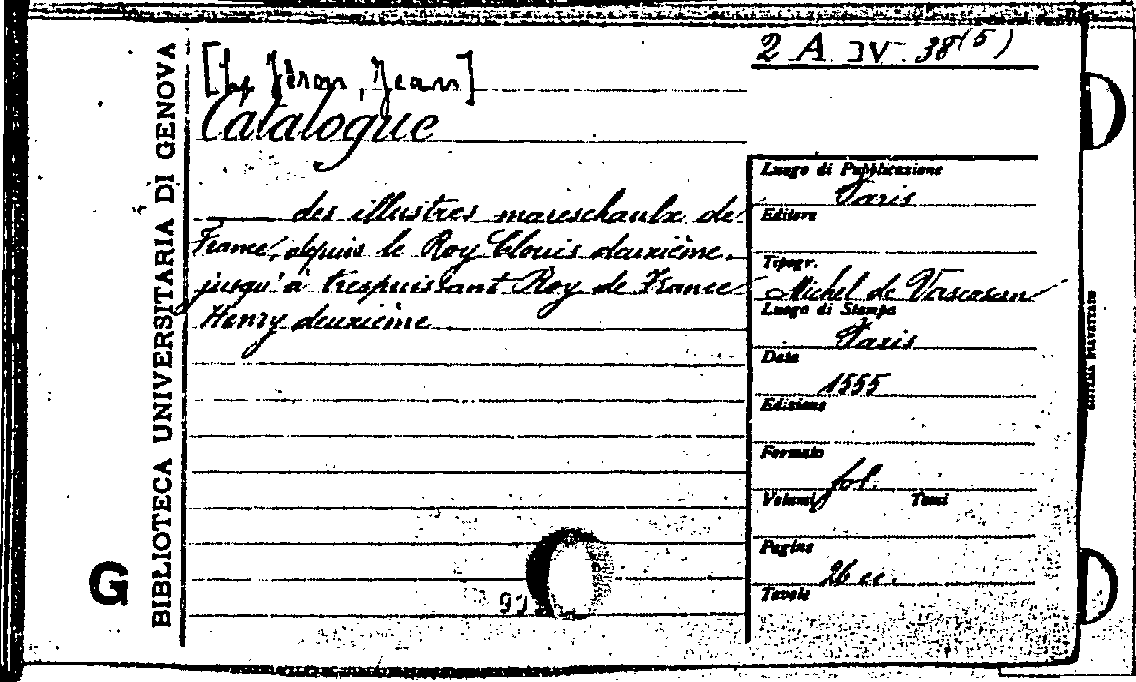 [Le Féron, Jean]
Catalogue
2 A IV 38(5)
des illustres mareschaulx de
France, depuis le Roy Clouis deuxième,
jusqu'à trespuissant Roy de France
Henry deuxième
Luogo di Pubblicazione
Paris
Editore
Tipogr.
Michel de Vascosan
Luogo di Stampa
Paris
Data
1555
Edizione
Formato
fol.
Volumi Tomi
Pagine
26 cc.
Tavole
BIBLIOTECA UNIVERSITARIA DI GENOVA
G